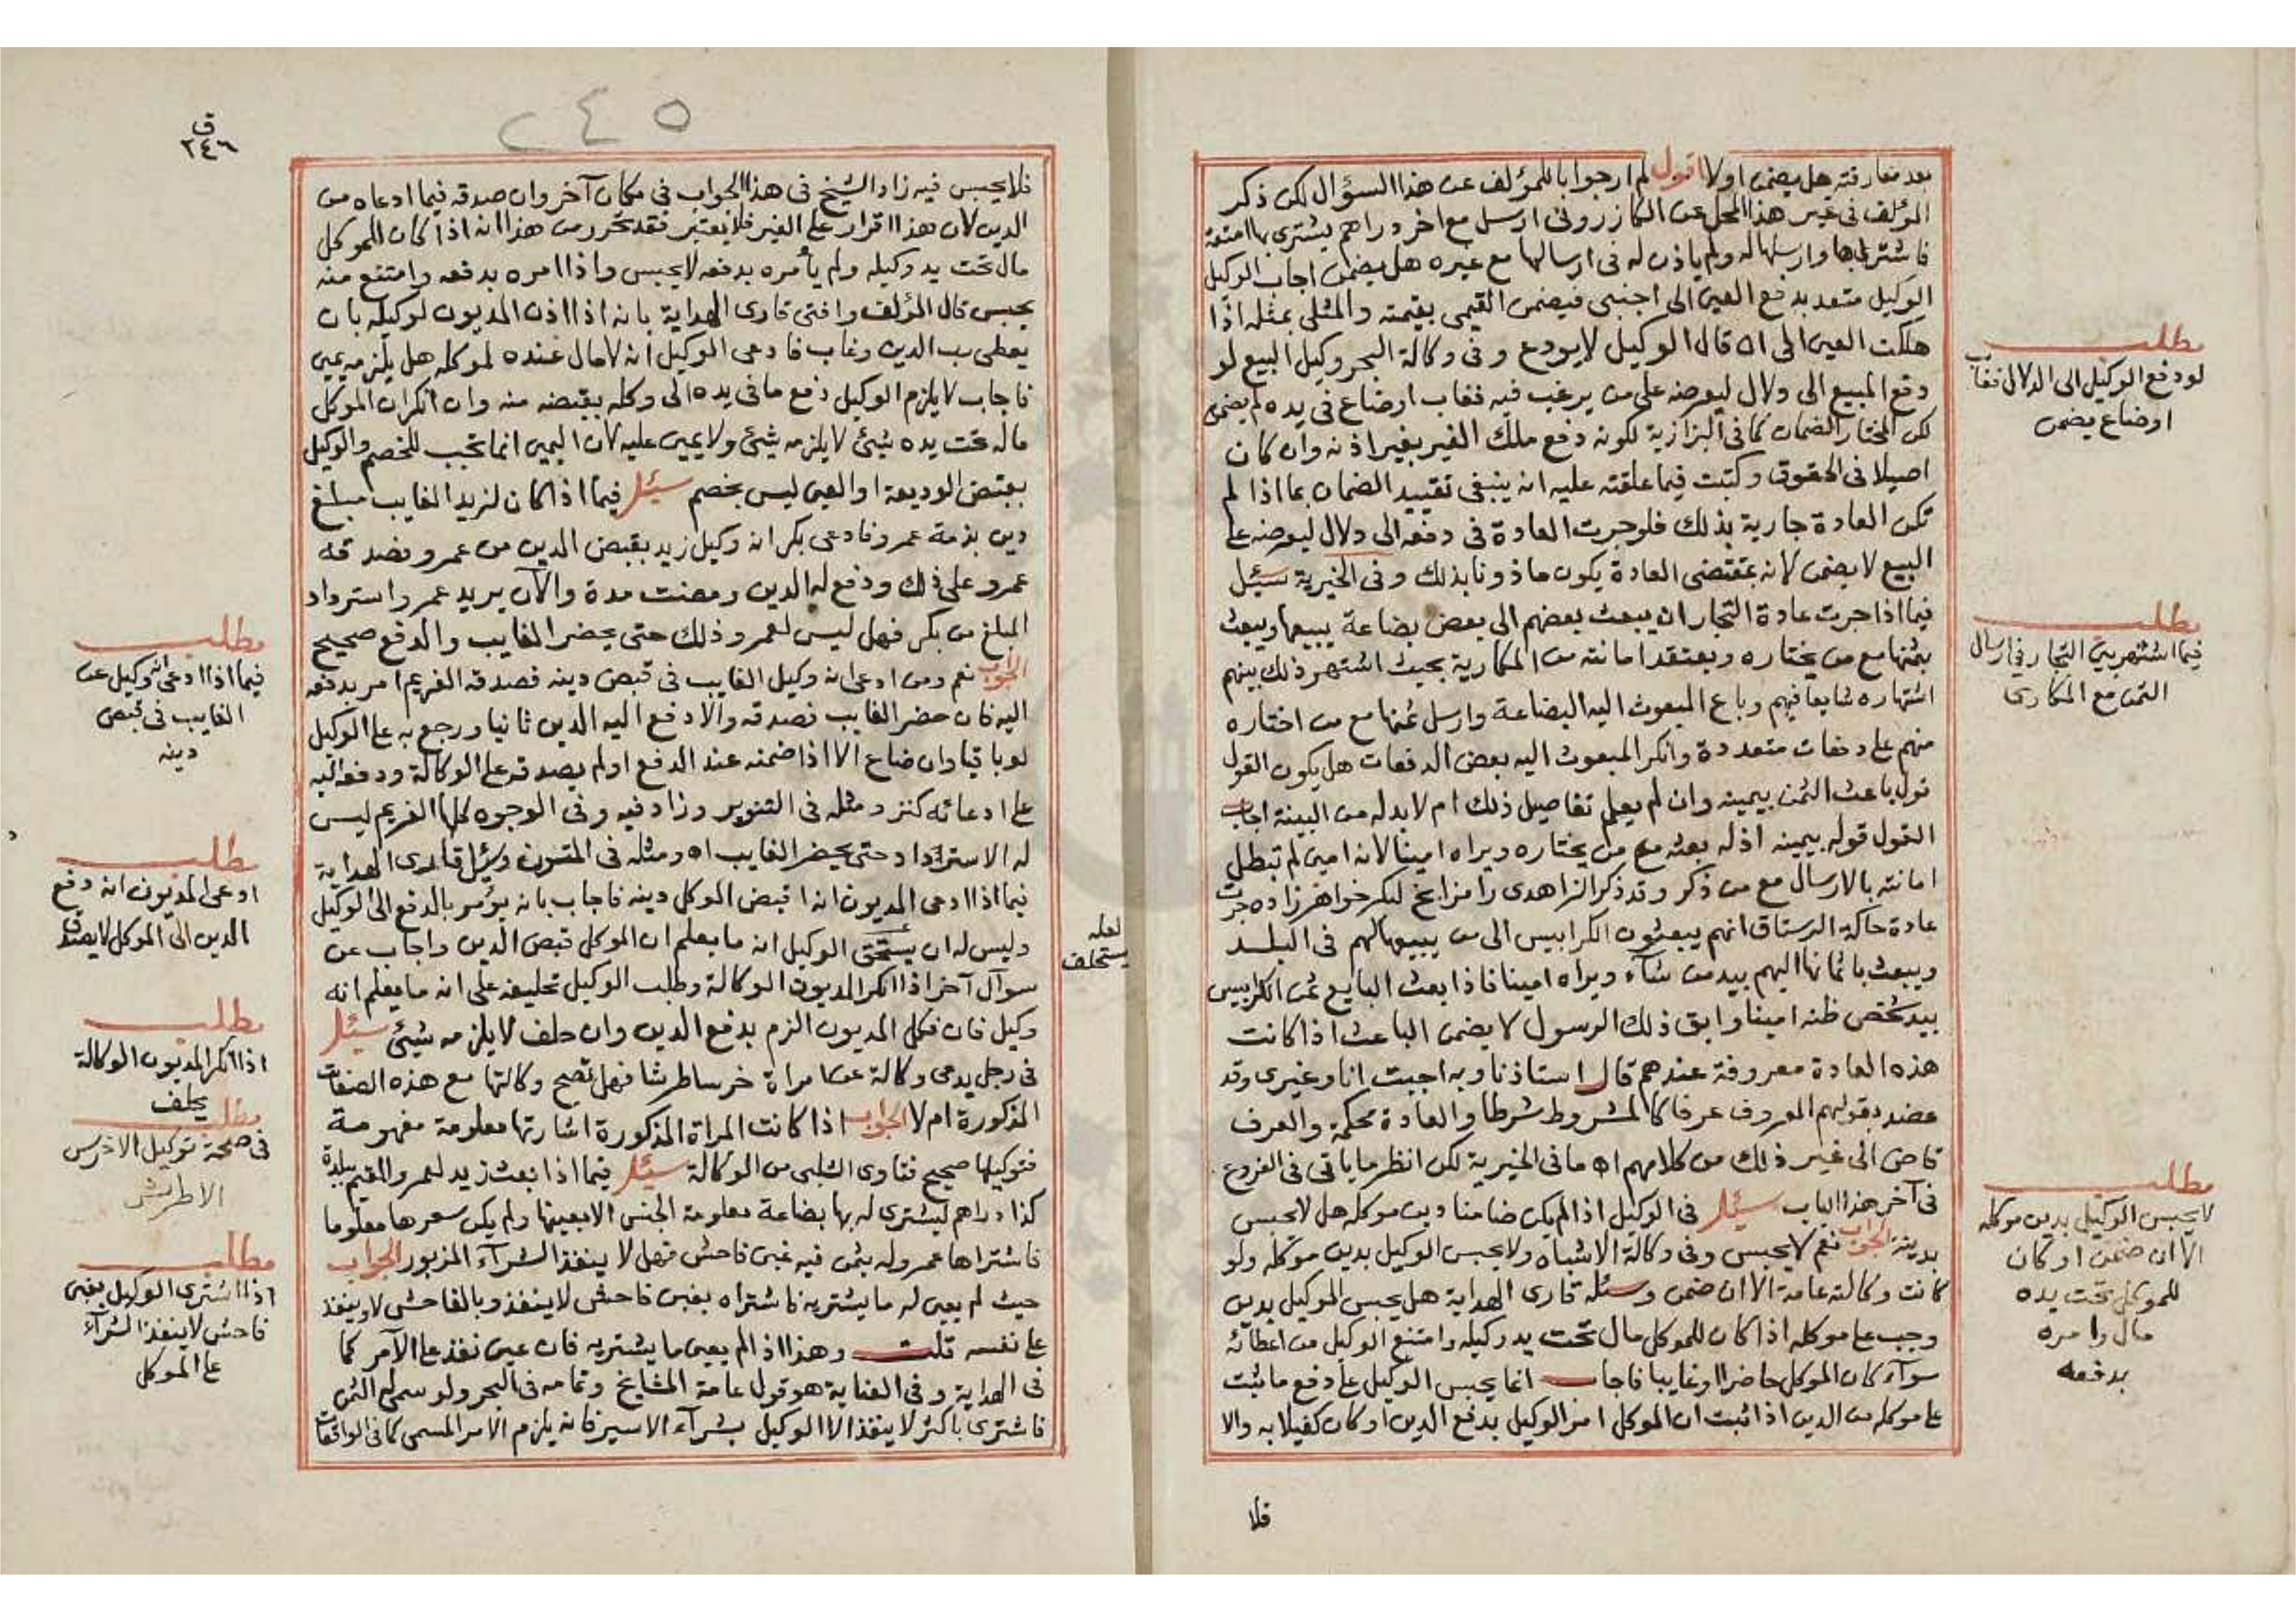 بعد مفارقته هل يضمن اولا اقول لم ار جوابا للمؤلف عن هذا السؤال لكن ذكر
المؤلف فى غير هذا المحل عن الكازرونى ارسل مع اخر دراهم يشترى بها امتعة
فاشترى بها وارسلها له ولم ياذن له فى ارسالها مع غيره هل يضمن اجاب الوكيل
الوكيل متعد بدفع العين الى اجنبى فيضمن القيمى بقيمته والمثلى بمثله اذا
هلكت العين الى ان قال الوكيل لا يودع وفى وكالة البحر وكيل البيع لو
دفع المبيع الى دلال ليعرضه على من يرغب فيه فغاب او ضاع فى يده لم يضمن
لكن المختار الضمان كما فى البزازية لكونه دفع ملك الغير بغير اذنه وان كان
اصيلا فى الحقوق وكتبت فيما علقته عليه انه ينبغى تقييد الضمان بما اذا لم
تكن العادة جارية بذلك فلو جرت العادة فى دفعه الى دلال ليعرضه على
البيع لا يضمن لانه بمقتضى العادة يكون ماذونا بذلك وفى الخيرية سئل
فيما اذا جرت عادة التجار ان يبعث بعضهم الى بعض بضاعة يبيعها ويبعث
بثمنها مع من يختاره ويعتقد امانته من المكارية بحيث اشتهر ذلك بينهم
اشتهاره شايعا فيهم وباع المبعوث اليه البضاعة وارسل ثمنها مع من اختاره
منهم على دفعات متعددة وانكر المبعوث اليه بعض الدفعات هل يكون القول
قول باعث الثمن بيمينه وان لم يعلم تفاصيل ذلك ام لا بد له من البينة اجاب
القول قوله بيمينه اذ له بعثه مع من يختاره ويراه امينا لانه امين لم تبطل
امانته بالارسال مع من ذكر وقد ذكر الزاهدى رامزا بخ لبكر خواهر زاده جرت
عادة حاكة الرستاق انهم يبعثون الكرابيس الى من يبيعها لهم فى البلد
ويبعث باثمانها اليهم بيد من شآء ويراه امينا فاذا بعث البايع ثمن الكرابيس
بيد شخص ظنه امينا وابق ذلك الرسول لا يضمن الباعث اذا كانت
هذه العادة معروفة عندهم قال استاذنا وبه اجبت انا وغيرى وقد
عضد بقولهم المعروف عرفا كالمشروط شرطا والعادة محكمة والعرف
قاض الى غير ذلك من كلامهم اه ما فى الخيرية لكن انظر ما ياتى فى الفروع
فى آخر هذا الباب سئل فى الوكيل اذا لم يكن ضامنا دين موكله هل لا يحبس
بدينه الجواب نعم لا يحبس وفى وكالة الاشباه ولا يحبس الوكيل بدين موكله ولو
كانت وكالته عامة الا ان ضمن وسئل قارى الهداية هل يحبس الوكيل بدين
وجب على موكله اذا كان للموكل مال تحت يد وكيله وامتنع الوكيل من اعطائه
سوآء كان الموكل حاضرا او غايبا فاجاب انما يحبس الوكيل على دفع ما ثبت
على موكله من الدين اذا ثبت ان الموكل امر الوكيل بدفع الدين او كان كفيلا به والا
فلا
مطلب
لو دفع الوكيل الى الدلال فغاب
او ضاع يضمن
مطلب
فيما اشتهر بين التجار فى ارسال
الثمن مع المكارى
مطلب
لا يحبس الوكيل بدين موكله
الا ان ضمن او كان
للموكل تحت يده
مال وامره
بدفعه
٢٤٥
ق
٢٤٦
فلا يحبس فيه زاد الشيخ فى هذا الجواب فى مكان آخر وان صدقه فيما ادعاه من
الدين لان هذا اقرار على الغير فلا يعتبر فقد تحرر من هذا انه اذا كان للموكل
مال تحت يد وكيله ولم يأمره بدفعه لا يحبس واذا امره بدفعه وامتنع منه
يحبس قال المؤلف وافتى قارى الهداية بانه اذا اذن المديون لوكيله بان
يعطى رب الدين وغاب فادعى الوكيل انه لا مال عنده لموكله هل يلزمه يمين
فاجاب لا يلزم الوكيل دفع ما فى يده الى وكله بقبضه منه وان انكر ان الموكل
ماله تحت يده شيئ لا يلزمه شيئ ولا يمين عليه لان اليمين انما تجب للخصم والوكيل
بقبض الوديعة او العين ليس بخصم سئل فيما اذا كان لزيد الغايب مبلغ
دين بذمة عمرو فادعى بكر انه وكيل زيد بقبض الدين من عمرو فصدقه
عمرو على ذلك ودفع له الدين ومضت مدة والآن يريد عمرو استرداد
المبلغ من بكر فهل ليس لعمرو ذلك حتى يحضر الغايب والدفع صحيح
الجواب نعم ومن ادعى انه وكيل الغايب فى قبض دينه فصدقه الغريم امر بدفعه
اليه فان حضر الغايب فصدقه والا دفع اليه الدين ثانيا ورجع به على الوكيل
لو باقيا وان ضاع لا الا اذا ضمنه عند الدفع او لم يصدقه على الوكالة ودفعه اليه
على ادعائه كنز ومثله فى التنوير وزاد فيه وفى الوجوه كلها الغريم ليس
له الاسترداد حتى يحضر الغايب اه ومثله فى المتون وسئل قارى الهداية
فيما اذا ادعى المديون انه اقبض الموكل دينه فاجاب بانه يؤمر بالدفع الى الوكيل
وليس له ان يستحق الوكيل انه ما يعلم ان الموكل قبض الدين واجاب عن
سوآل آخر اذا انكر المديون الوكالة وطلب الوكيل تحليفه على انه ما يعلم انه
وكيل فان نكل المديون الزم بدفع الدين وان حلف لا يلزمه شيئ سئل
فى رجل يدعى وكالة عن امراة خرسا طرشا فهل تصح وكالتها مع هذه الصفات
المذكورة ام لا الجواب اذا كانت المراة المذكورة اشارتها معلومة مفهومة
فتوكيلها صحيح فتاوى الشلبى من الوكالة سئل فيما اذا بعث زيد لعمرو المقيم ببلدة
كذا دراهم ليشترى له بها بضاعة معلومة الجنس لا بعينها ولم يكن سعرها معلوما
فاشتراها عمرو له بثمن فيه غبن فاحش فهل لا ينفذ الشرآء المزبور الجواب
حيث لم يعين له ما يشتريه فاشتراه بغبن فاحش لا ينفذ وبالفاحش لا وينفذ
على نفسه قلت وهذا اذا لم يعين ما يشتريه فان عين نفذ على الآمر كما
فى الهداية وفى العناية هو قول عامة المشايخ وتمامه فى البحر ولو سمى له الثمن
فاشترى باكثر لا ينفذ الا الوكيل بشرآء الاسير فانه يلزم الامر المسمى كما فى الواقعات
لعله
يستحلف
مطلب
فيما اذا ادعى انه وكيل عن
الغايب فى قبض
دينه
مطلب
ادعى المديون انه دفع
الدين الى الموكل لا يصدق
مطلب
اذا انكر المديون الوكالة
يحلف
مطلب
فى صحة توكيل الاخرس
الاطرش
مطلب
اذا اشترى الوكيل بغبن
فاحش لا ينفذ الشرآء
على الموكل